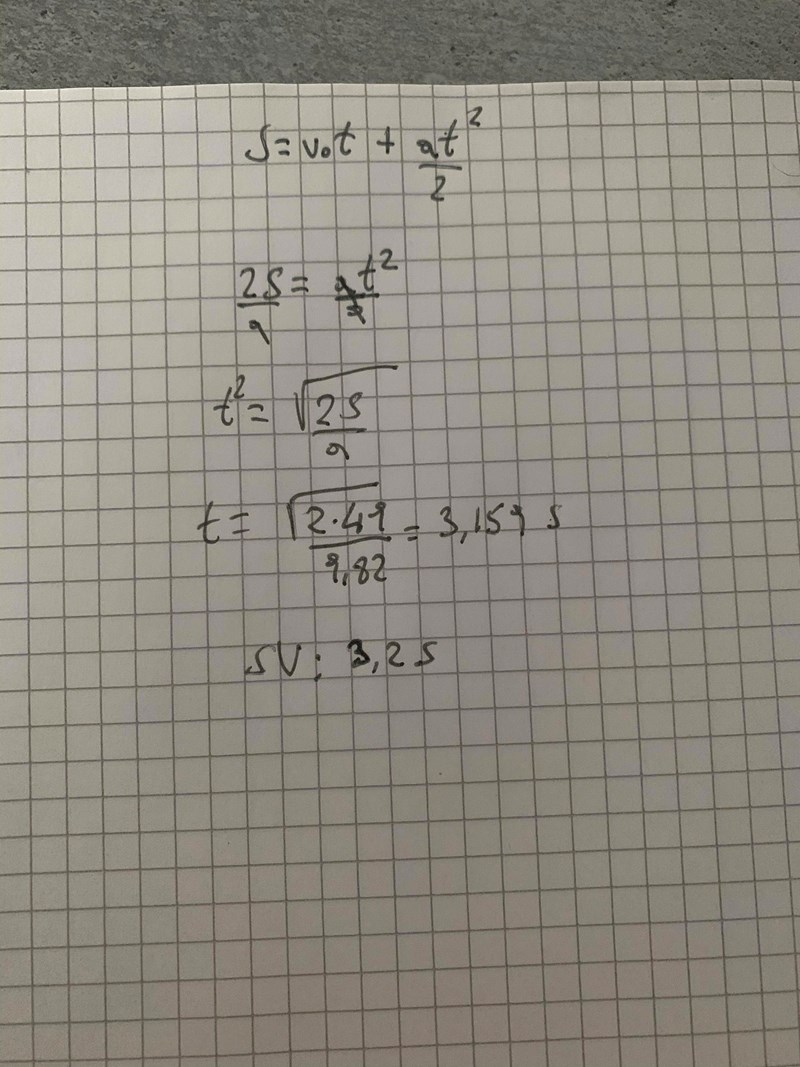 s = v₀t + at²/2
2s/a = at²/2
t² = √(2s/a)
t = √(2·49/9,82) = 3,159 s
SV: 3,2 s